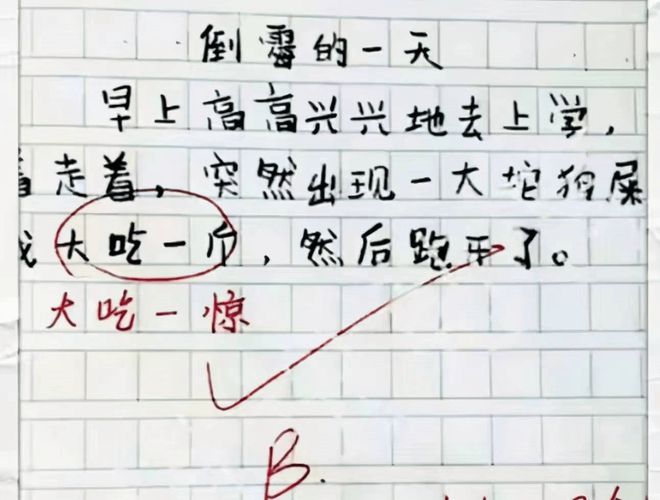 倒霉的一天
早上高高兴兴地去上学，
着走着，突然出现一大坨狗屎
我大吃一斤，然后跑开了。
大吃一惊
B.